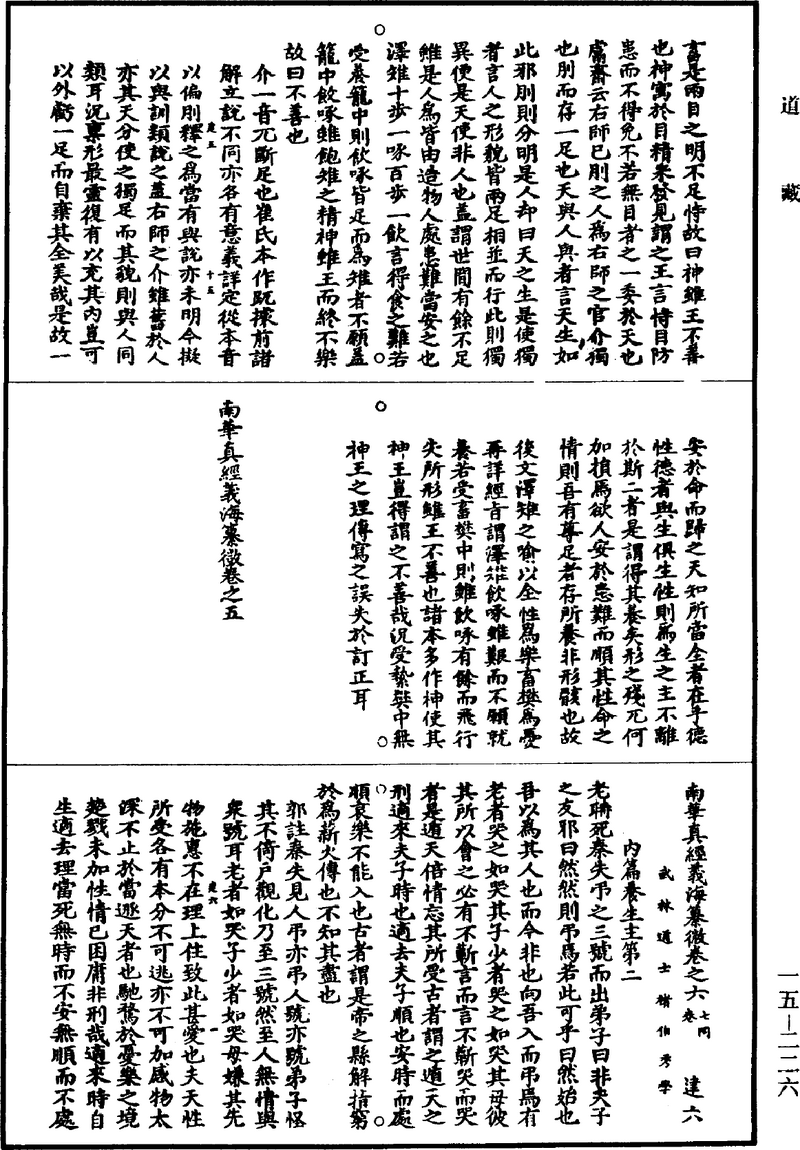 道藏
言是兩目之明不足恃故曰神雖王不善
也神寓於目精采發見謂之王言恃目防
患而不得免不若無目者之一委於天也
鬳齋云右師已刖之人為右師之官介獨
也刖而存一足也天與人與者言天生如
此邪刖則分明是人却曰天之生是使獨
者言人之形貌皆兩足相並而行此則獨
異便是天使非人也蓋謂世間有餘不足
雖是人為皆由造物人處患難當安之也
澤雉十步一啄百步一飲言得食之難若
受養籠中則飲啄皆足而為雉者不願蓋
籠中飲啄雖飽雉之精神雖王而終不樂
故曰不善也
介一音兀斷足也崔氏本作䟦㨿前諸
解立說不同亦各有意義詳定從本音
以偏刖釋之為當有與說亦未明今擬
以與訓類說之蓋右師之介雖舊於人
亦其天分使之獨足而其貌則與人同
類耳況稟形最靈復有以充其內豈可
以外虧一足而自棄其全美哉是故一
安於命而歸之天知所當全者在乎德
性德者與生俱生性則為生之主不離
於斯二者是謂得其養矣形之殘兀何
加損焉欲人安於患難而順其性命之
情則吾有尊足者存所養非形骸也故
後文澤雉之喻以全性為樂畜樊為憂
再詳經旨謂澤雉飲啄雖艱而不願就
養若受畜樊中則雖飲啄有餘而飛行
失所形雖王不善也諸本多作神使其
神王豈得謂之不善哉況受縶樊中無
神王之理傳寫之誤失於訂正耳
南華真經義海纂微卷之五
南華真經義海纂微卷之六 七同卷 建六
武林道士褚伯秀學
內篇養生主第二
老聃死秦失弔之三號而出弟子曰非夫子
之友耶曰然然則弔焉若此可乎曰然始也
吾以為其人也而今非也向吾入而弔焉有
老者哭之如哭其子少者哭之如哭其母彼
其所以會之必有不蘄言而言不蘄哭而哭
者是遁天倍情忘其所受古者謂之遁天之
刑適來夫子時也適去夫子順也安時而處
順哀樂不能入也古者謂是帝之縣解指窮
於為薪火傳也不知其盡也
郭註秦失見人弔亦弔人號亦號弟子怪
其不倚戶觀化乃至三號然至人無情與
衆號耳老者如哭子少者如哭母嫌其先
物施惠不在理上住致此甚愛也夫天性
所受各有本分不可逃亦不可加感物太
深不止於當遁天者也馳騖於憂樂之境
楚戮未加性情已困庸非刑哉適來時自
生適去理當死無時而不安無順而不處
一五—二二六